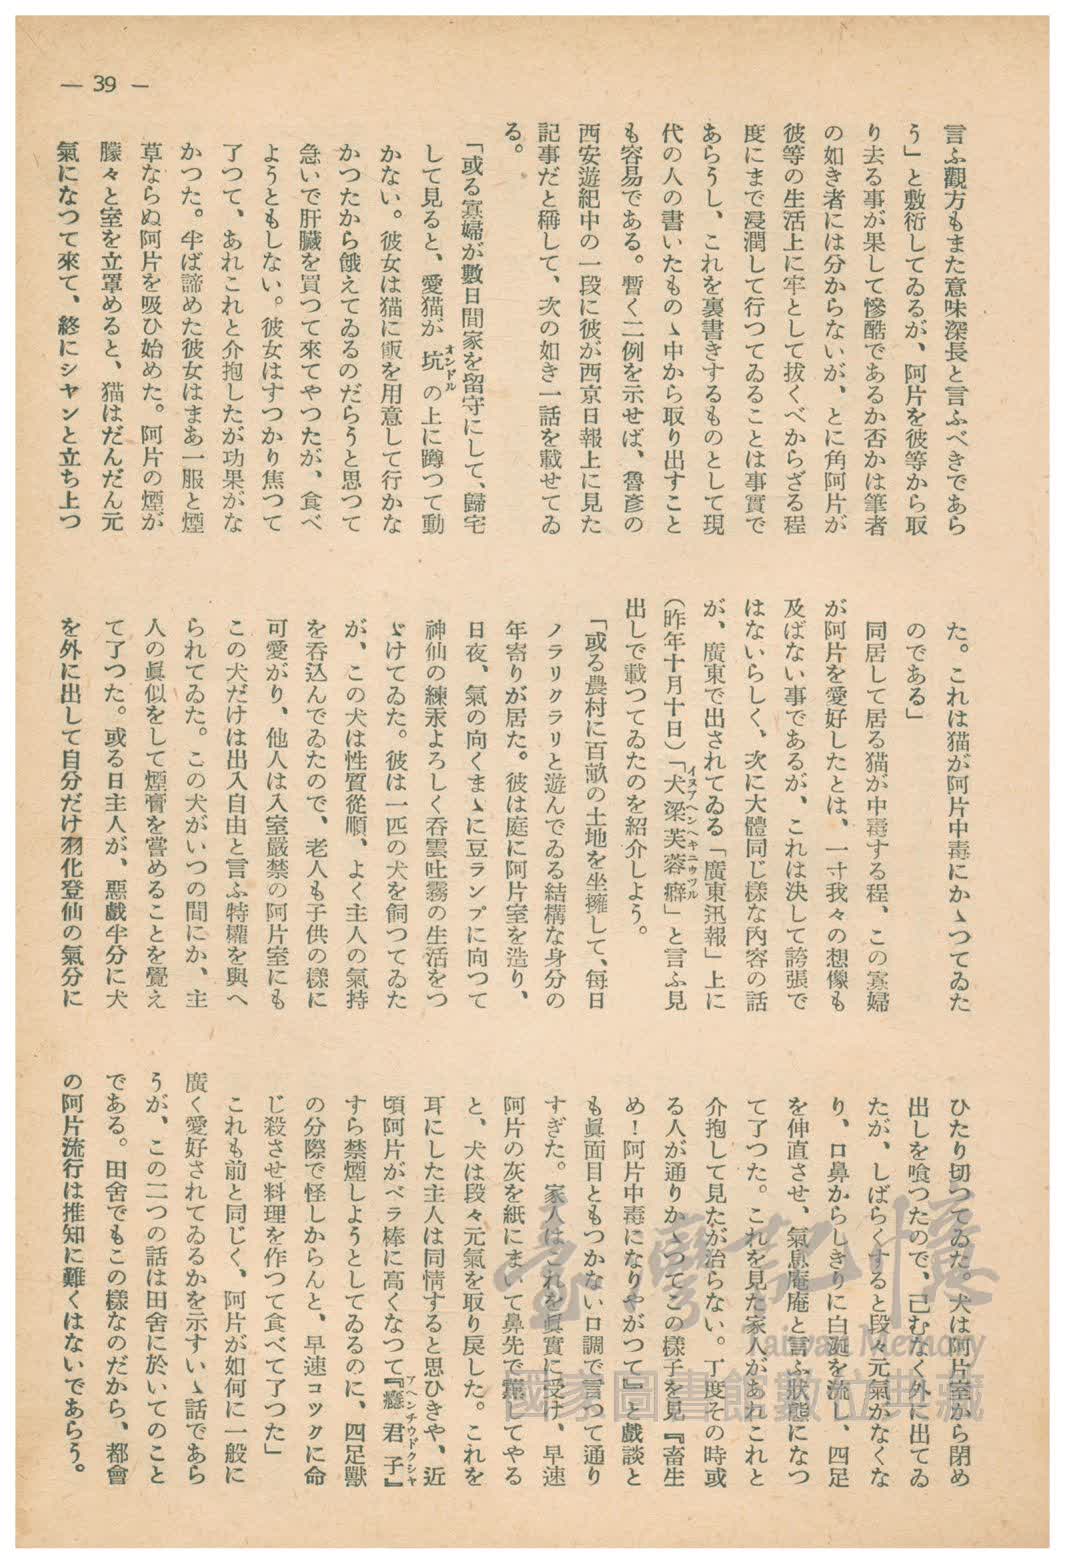 — 39 —
言ふ觀方もまた意味深長と言ふべきであら
う」と敷衍してゐるが、阿片を彼等から取
り去る事が果して慘酷であるか否かは筆者
の如き者には分からないが、とに角阿片が
彼等の生活上に牢として拔くべからざる程
度にまで浸潤して行つてゐることは事實で
あらうし、これを裏書きするものとして現
代の人の書いたものゝ中から取り出すこと
も容易である。暫く二例を示せば、魯彦の
西安遊紀中の一段に彼が西京日報上に見た
記事だと稱して、次の如き一話を載せてゐ
る。
「或る寡婦が數日間家を留守にして、歸宅
して見ると、愛猫が坑オンドルの上に蹲つて動
かない。彼女は猫に飯を用意して行かな
かつたから餓えてゐるのだらうと思つて
急いで肝臟を買つて來てやつたが、食べ
ようともしない。彼女はすつかり焦つて
了つて、あれこれと介抱したが功果がな
かつた。半ば諦めた彼女はまあ一服と煙
草ならぬ阿片を吸ひ始めた。阿片の煙が
朦々と室を立罩めると、猫はだんだん元
氣になつて來て、終にシヤンと立ち上つ
た。これは猫が阿片中毒にかゝつてゐた
のである」
同居して居る猫が中毒する程、この寡婦
が阿片を愛好したとは、一寸我々の想像も
及ばない事であるが、これは決して誇張で
はないらしく、次に大體同じ樣な內容の話
が、廣東で出されてゐる「廣東迅報」上に
(昨年十月十日)「犬梁芙蓉癖イヌアヘンヘキニウツル」と言ふ見
出しで載つてゐたのを紹介しよう。
「或る農村に百畝の土地を坐擁して、每日
ノラリクラリと遊んでゐる結構な身分の
年寄りが居た。彼は庭に阿片室を造り、
日夜、氣の向くまゝに豆ランプに向つて
神仙の練汞よろしく呑雲吐霧の生活をつ
ゞけてゐた。彼は一匹の犬を飼つてゐた
が、この犬は性質從順、よく主人の氣持
を呑込んでゐたので、老人も子供の樣に
可愛がり、他人は入室嚴禁の阿片室にも
この犬だけは出入自由と言ふ特權を與へ
られてゐた。この犬がいつの間にか、主
人の眞似をして煙膏を嘗めることを覺え
て了つた。或る日主人が、惡戲半分に犬
を外に出して自分だけ羽化登仙の氣分に
ひたり切つてゐた。犬は阿片室から閉め
出しを喰つたので、已むなく外に出てゐ
たが、しばらくすると段々元氣がなくな
り、口鼻からしきりに白涎を流し、四足
を伸直させ、氣息庵庵と言ふ狀態になつ
て了つた。これを見た家人があれこれと
介抱して見たが治らない。丁度その時或
る人が通りかゝつてこの樣子を見『畜生
め!阿片中毒になりやがつて』と戲談と
も眞面目ともつかない口調で言つて通り
すぎた。家人はこれを眞實に受け、早速
阿片の灰を紙にまいて鼻先で燻してやる
と、犬は段々元氣を取り戾した。これを
耳にした主人は同情すると思ひきや、近
頃阿片がベラ棒に高くなつて『癮君子アヘンチウドクシヤ』
すら禁煙しようとしてゐるのに、四足獸
の分際で怪しからんと、早速コックに命
じ殺させ料理を作つて食べて了つた」
これも前と同じく、阿片が如何に一般に
廣く愛好されてゐるかを示すいゝ話であら
うが、この二つの話は田舍に於いてのこと
である。田舍でもこの樣なのだから、都會
の阿片流行は推知に難くはないであらう。
臺灣記憶
Taiwan Memory
國家圖書館數位典藏